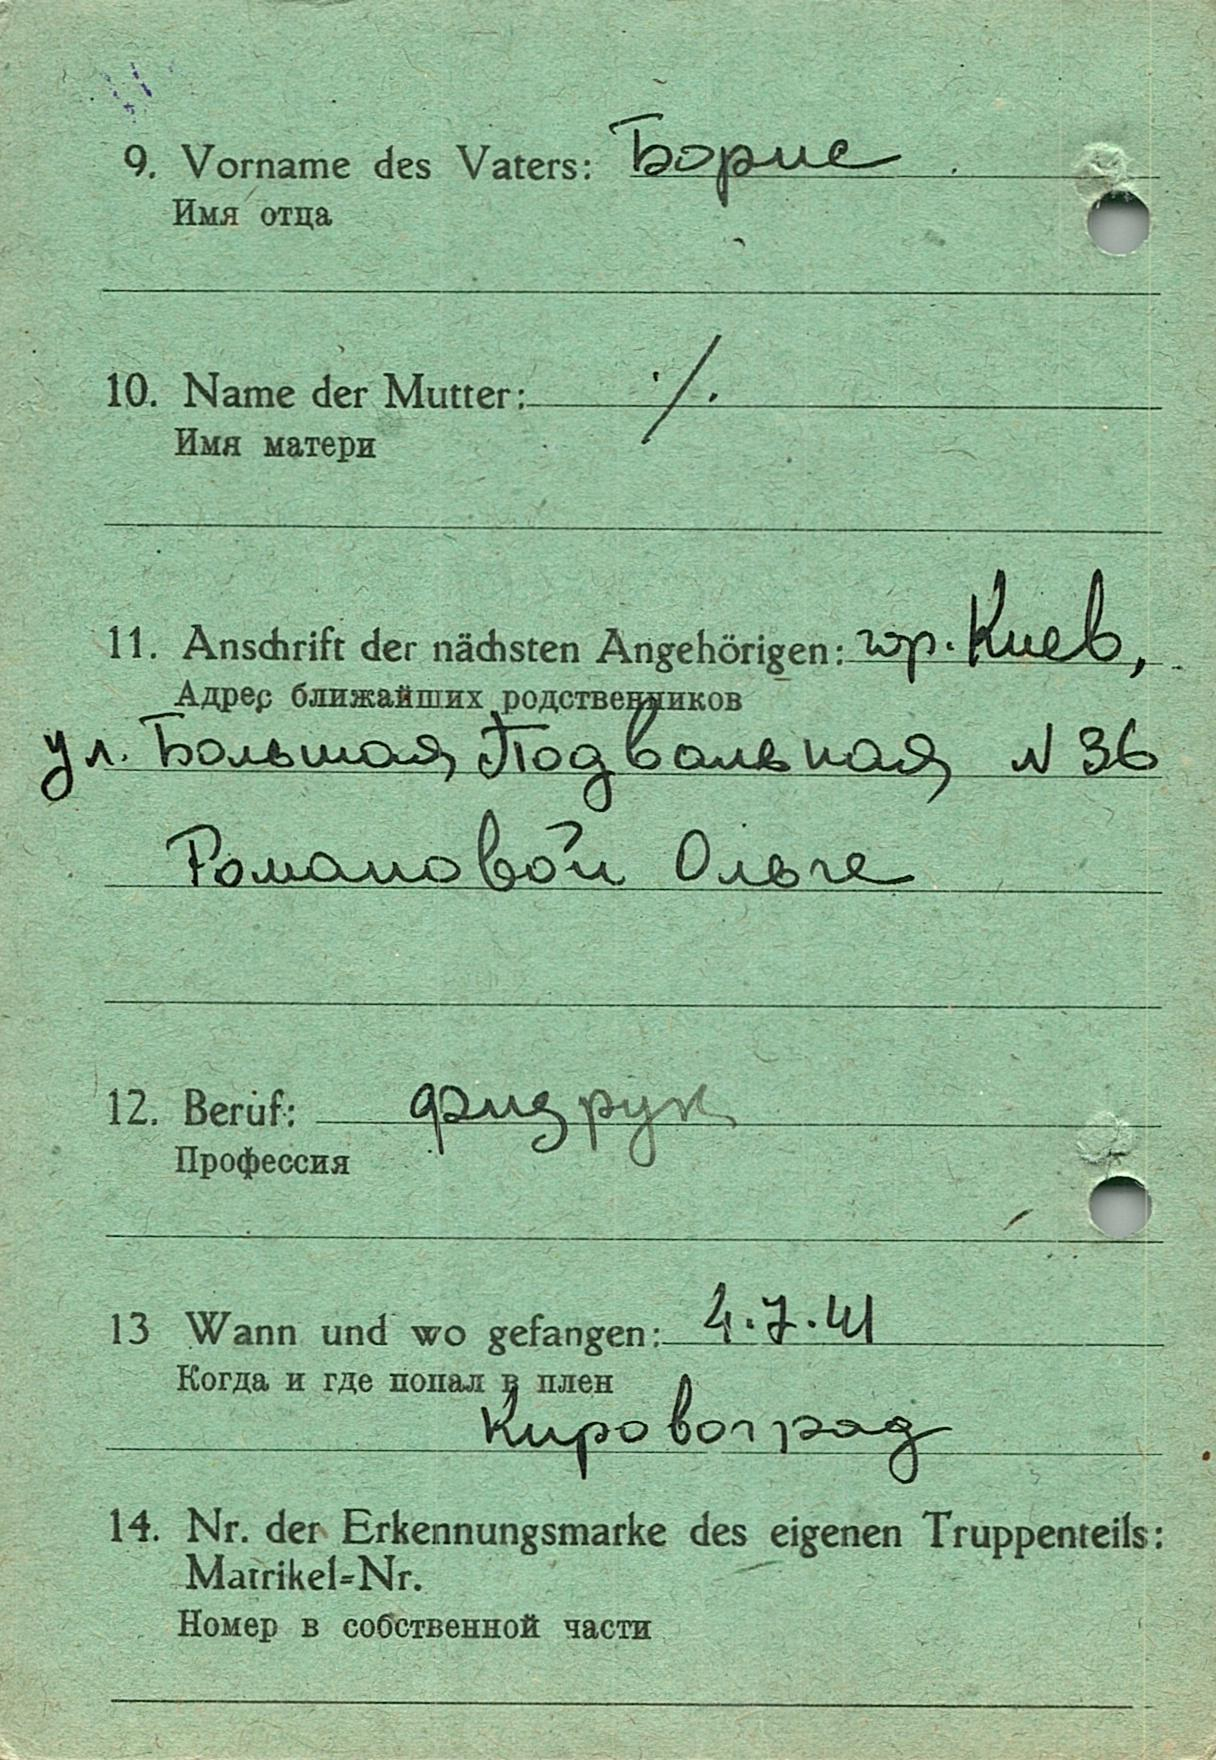 9. Vorname des Vaters: Борис
Имя отца
10. Name der Mutter: ·/.
Имя матери
11. Anschrift der nächsten Angehörigen: гор. Киев,
Адрес ближайших родственников
ул. Большая Подвальная N 36
Романовой Ольге
12. Beruf: физрук
Профессия
13 Wann und wo gefangen: 4.7.41
Когда и где попал в плен
Кировоград
14. Nr. der Erkennungsmarke des eigenen Truppenteils:
Matrikel=Nr.
Номер в собственной части